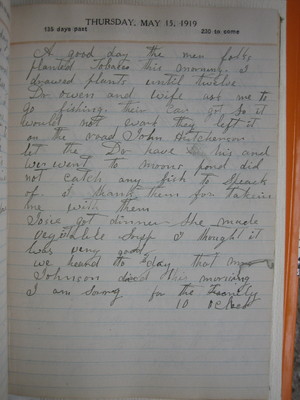 THURSDAY, MAY 15, 1919
135 days past 230 to come
A good day the men folks
planted Tobacco this morning. I
drawed plants until twelve
Dr Owen and wife got me to
go fishing. their car got so it
would not work they left it
on the road John Hutcherson
let the Dr have his and
we went to moons pond did
not catch any fish to speack
of it thank them for takeing
me with them
Josie got dinner She made
vegetable Soup I thought it
was very good
we heard to day that
Johnson died this morning
I am Sorry for the Family
10 oclock